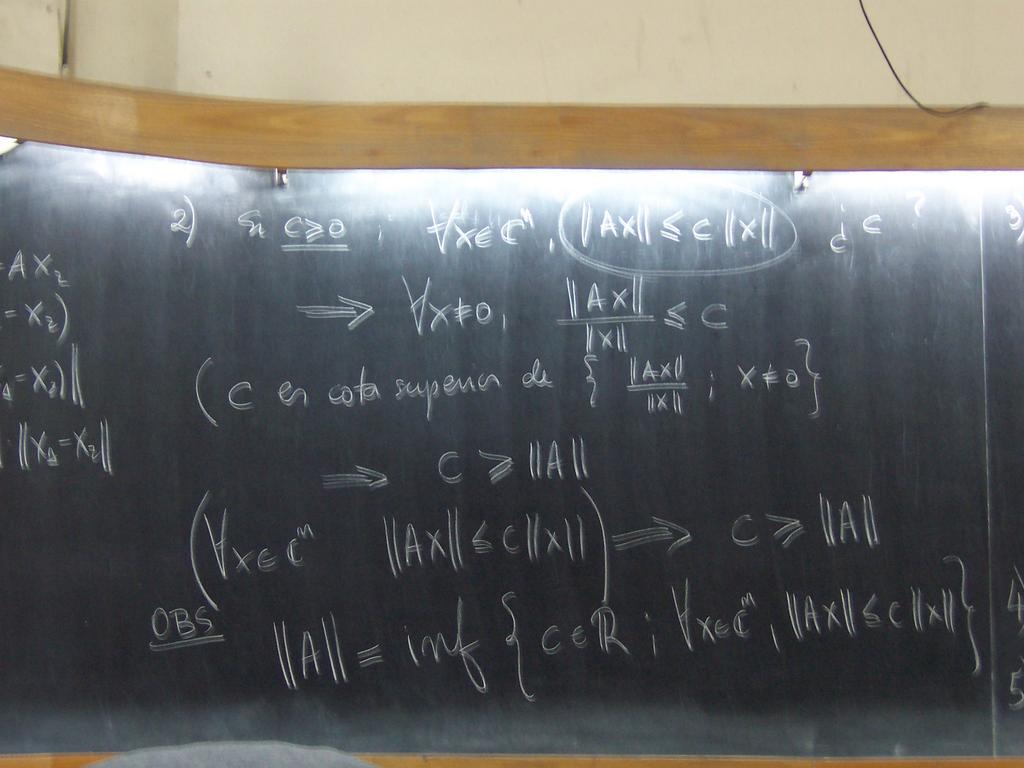 = AX₂
- X₂)
- X₂)||
||X₁-X₂||
2) Si C≥0 ; ∀x∈ℂⁿ, ||AX|| ≤ C ||X|| ¿ C ?
⟹ ∀x≠0, ||AX||/||X|| ≤ C
(C es cota superior de { ||AX||/||X|| ; X≠0 }
⟹ C ≥ ||A||
(∀x∈ℂⁿ ||AX|| ≤ C||X||) ⟹ C ≥ ||A||
OBS ||A|| = inf { C∈ℝ ; ∀x∈ℂⁿ, ||AX|| ≤ C||X|| }
3)
4)
5